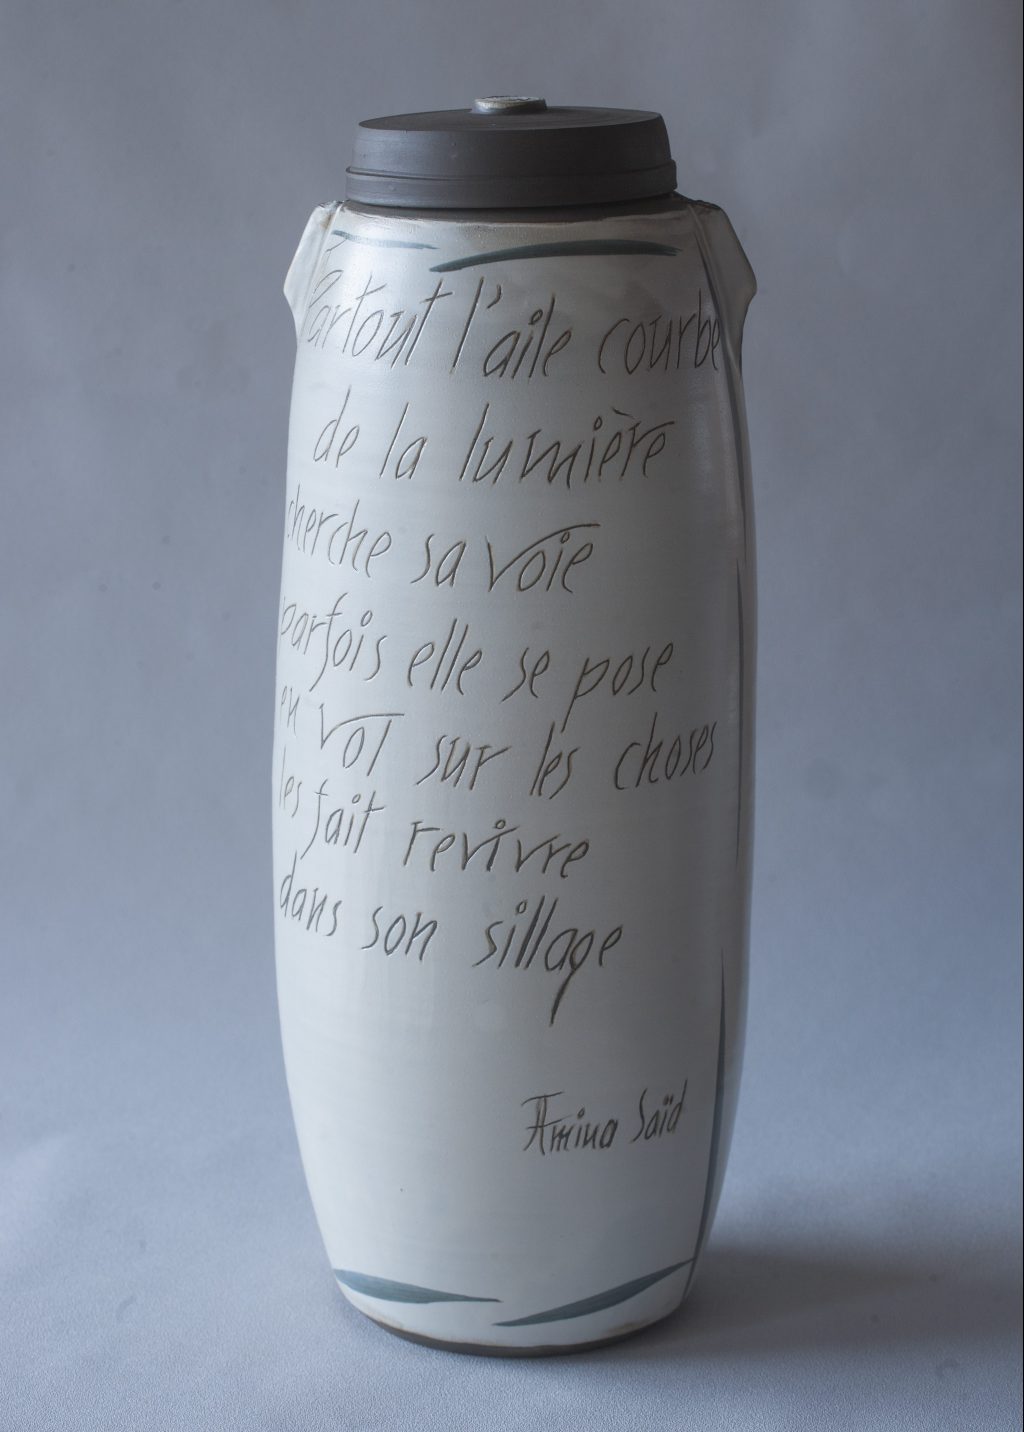 Partout l'aile courbe
de la lumière
cherche sa voie
parfois elle se pose
en vol sur les choses
les fait revivre
dans son sillage
Amina Saïd